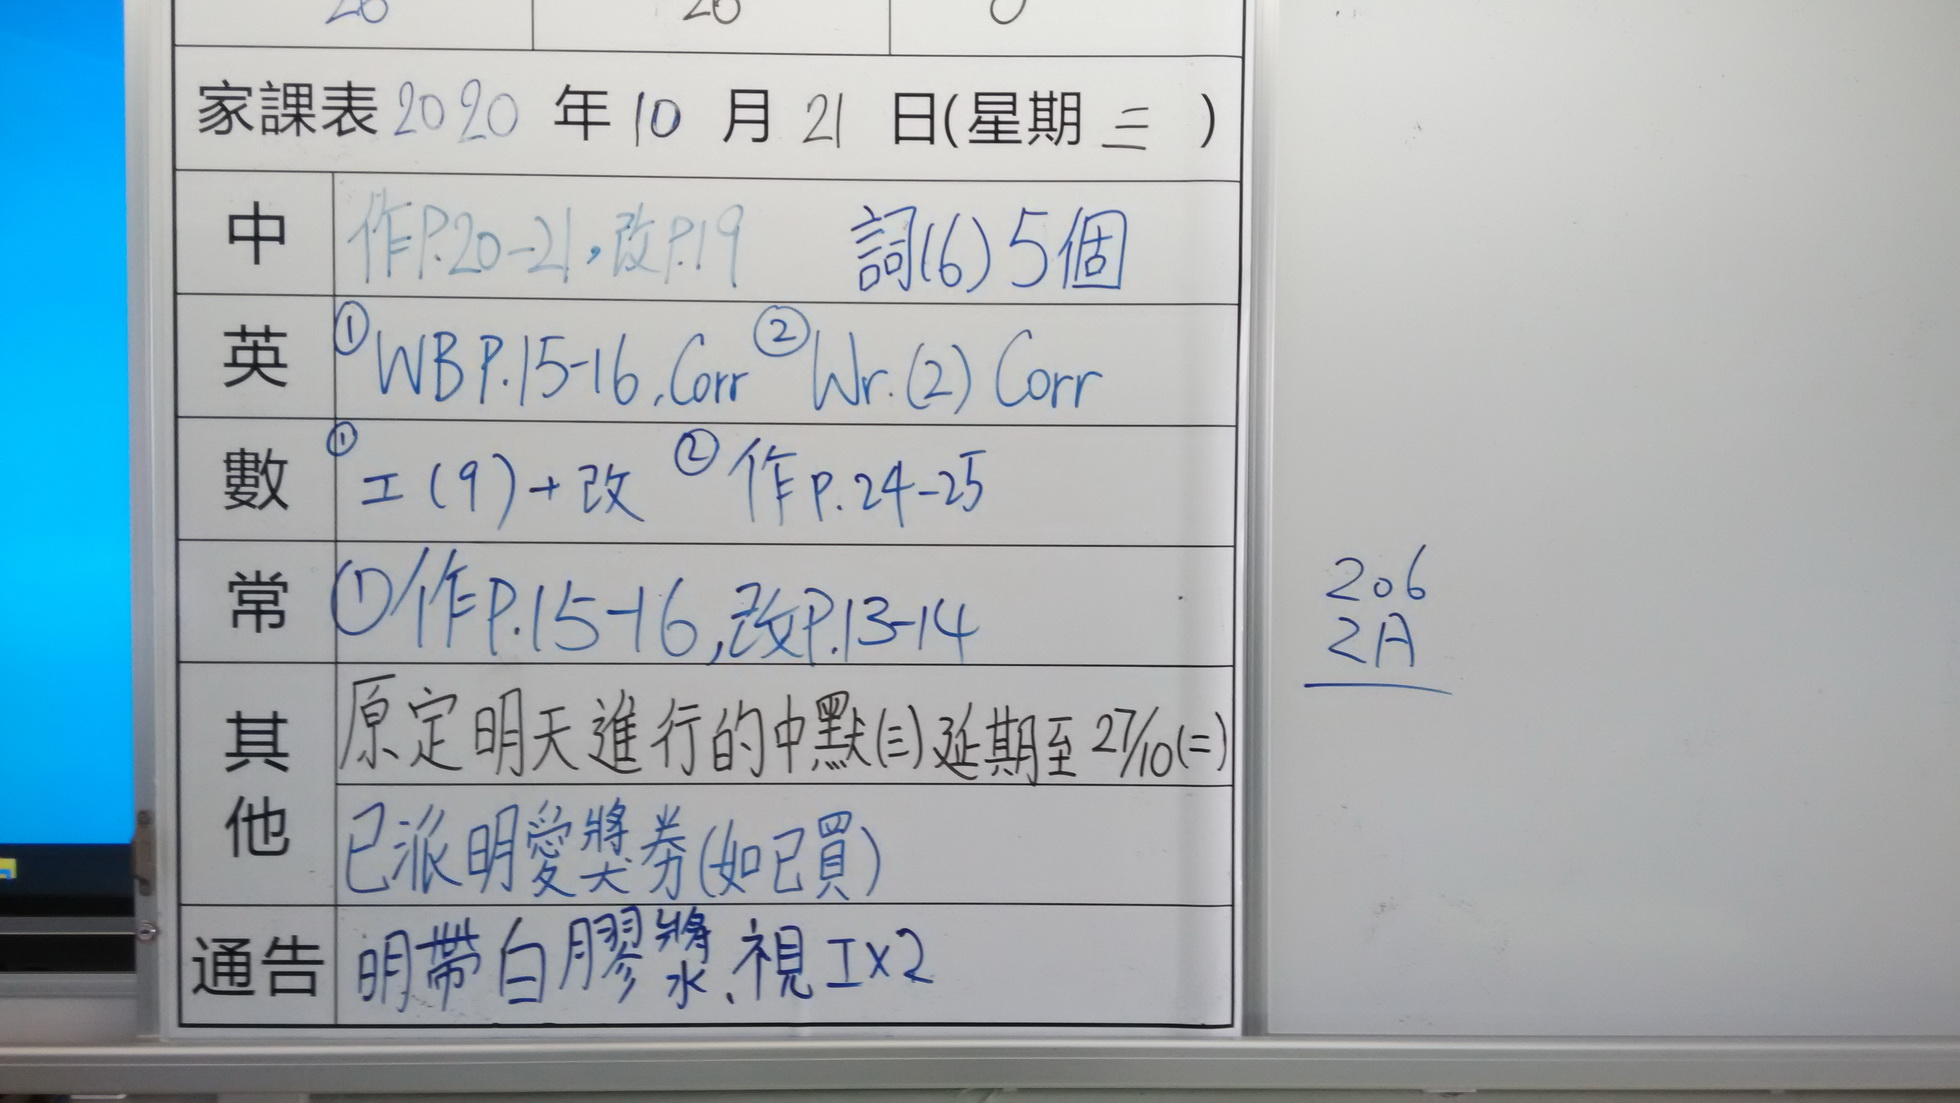 26 26 0
家課表 2020 年 10 月 21 日(星期 三 )
中 作P.20-21,改P.19 詞(6) 5個
英 ① WB P.15-16, Corr ② Wr.(2) Corr
數 ① 工(9)+改 ② 作P.24-25
常 ① 作P.15-16,改P.13-14
其他 原定明天進行的中默(三)延期至 27/10(二)
已派明愛獎券(如已買)
通告 明帶白膠漿、視工x2
206
2A